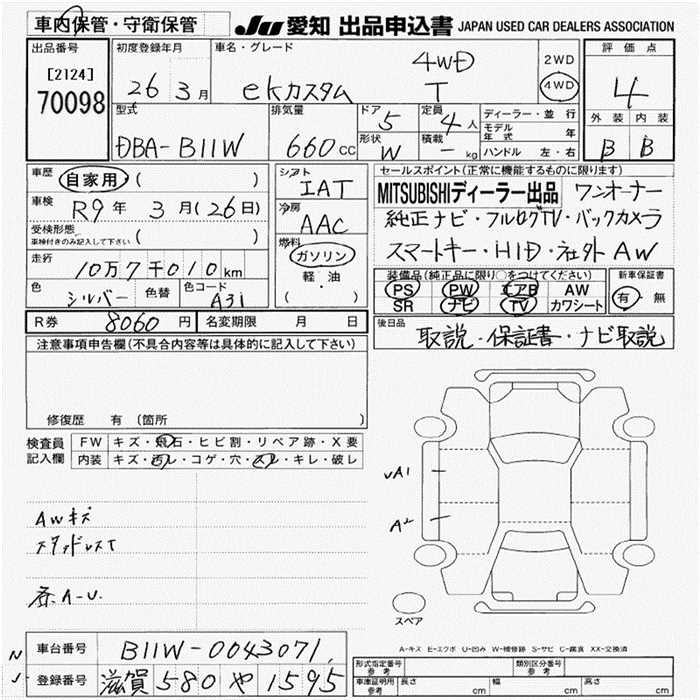 車内保管・守衛保管
JU 愛知 出品申込書 JAPAN USED CAR DEALERS ASSOCIATION
出品番号 [2124] 70098
初度登録年月 26年 3月
車名・グレード 4WD ekカスタム T
2WD
4WD
評価点 4
外装 内装
B B
型式 DBA-B11W
排気量 660cc
ドア 5
形状 W
定員 4人
積載 - kg
ディーラー・並行
モデル年式 年
ハンドル 左・右
車歴 自家用 ( )
車検 R9年 3月 (26日)
受検形態 車検付きのみ記入して下さい ( )
走行 10万7千010km
色 シルバー 色替 色コード A31
シフト IAT
冷房 AAC
燃料 ガソリン
軽・油
( )
セールスポイント(正常に機能するものに限ります)
MITSUBISHIディーラー出品 ワンオーナー
純正ナビ・フルセグTV・バックカメラ
スマートキー・HID・社外AW
装備品(純正品に限り○をつけてください)
PS PW エアB AW
SR ナビ TV カワシート
新車保証書
有・無
R券 8060円 名変期限 月 日
後日品 取説・保証書・ナビ取説
注意事項申告欄(不具合内容等は具体的に記入して下さい)
修復歴 有 (箇所 )
検査員記入欄
FW キズ・飛石・ヒビ割・リペア跡・X要
内装 キズ・汚レ・コゲ・穴・スレ・キレ・破レ
AWキズ
スタッドレスT
A-U.
A1
A2
スペア
A-キズ E-エクボ U-凹み W-補修跡 S-サビ C-腐食 XX-交換済
車台番号 B11W-0043071
登録番号 滋賀 580 や 1595
N
J
形式指定番号 参考
類別区分番号 参考
車庫証明用 参考 長さ cm 幅 cm 高さ cm